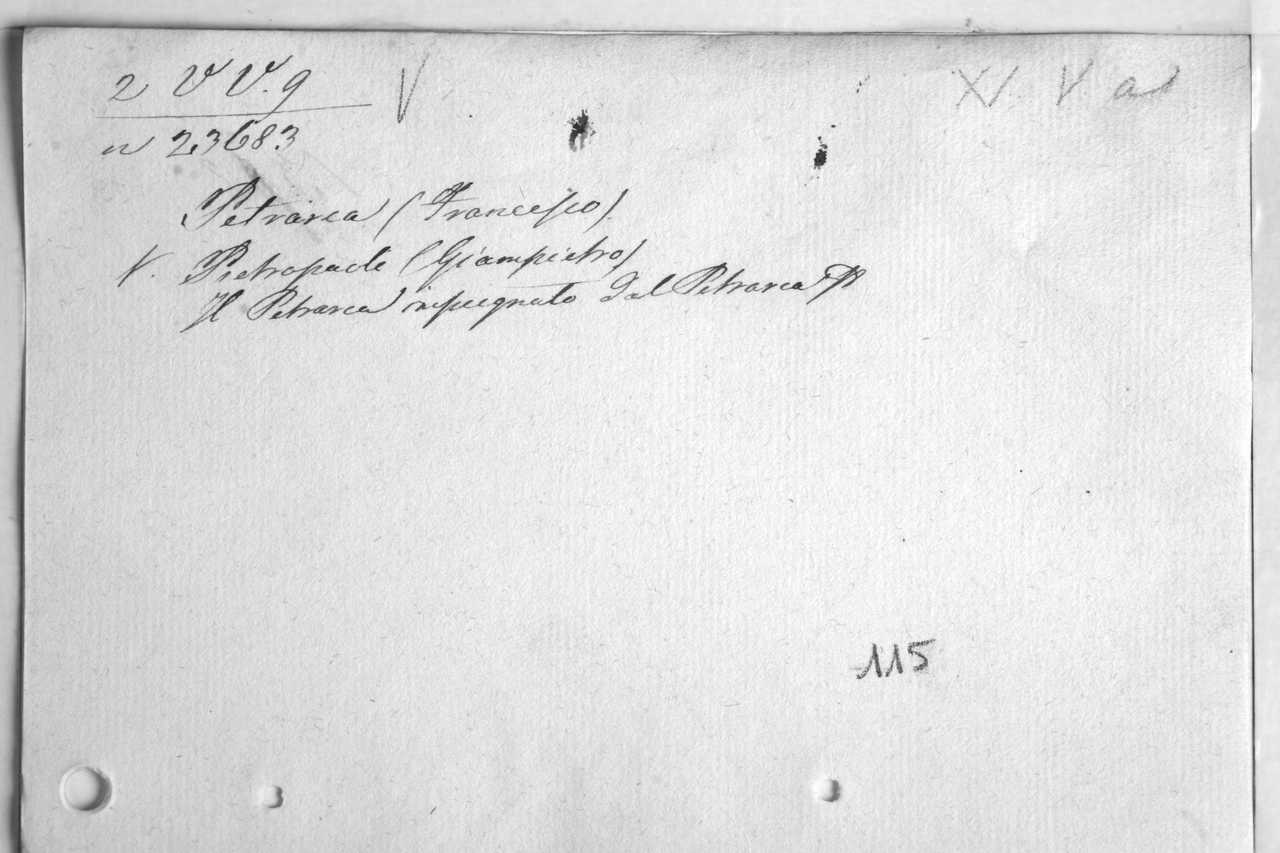 2 V V. 9 V XV V a
n 23683
Petrarca (Francesco)
V. Pietropaoli (Giampietro)
Il Petrarca impugnato dal Petrarca
115